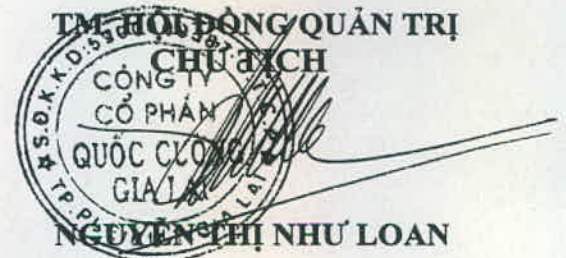 TM. HỘI ĐỒNG QUẢN TRỊ
CHỦ TỊCH
S.Đ.K.K.D:
CÔNG TY
CỔ PHẦN
QUỐC CƯỜNG
GIA LAI
NGUYỄN THỊ NHƯ LOAN